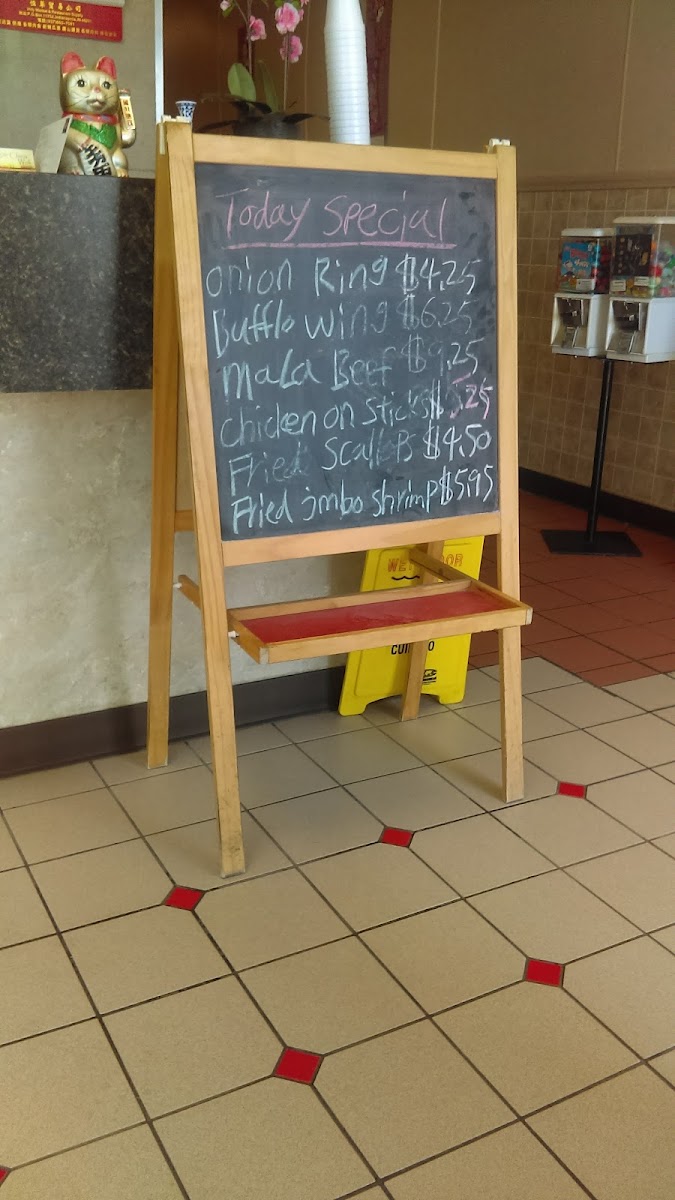 Today Special
onion Ring $4.25
Bufflo Wing $6.25
Mala Beef $9.25
Chicken on Sticks $5.25
Fried Scallops $4.50
Fried jmbo shrimp $5.95
WET